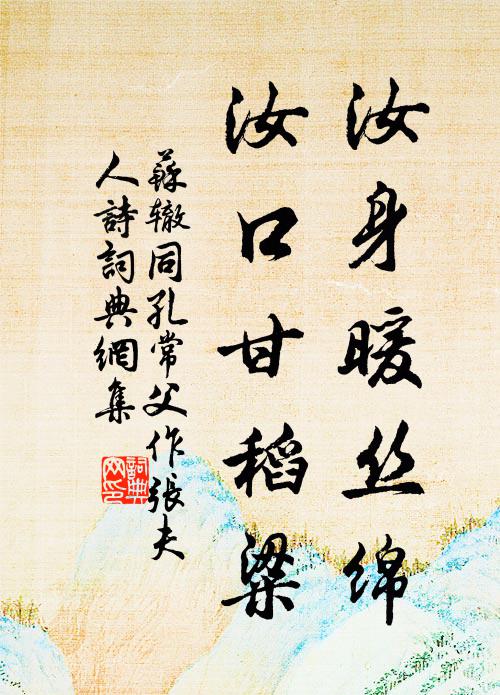 汝身暖丝绵
汝口甘稻粱
蘇辙同孔常父作張夫
人詩詞典網集
詞典
网印